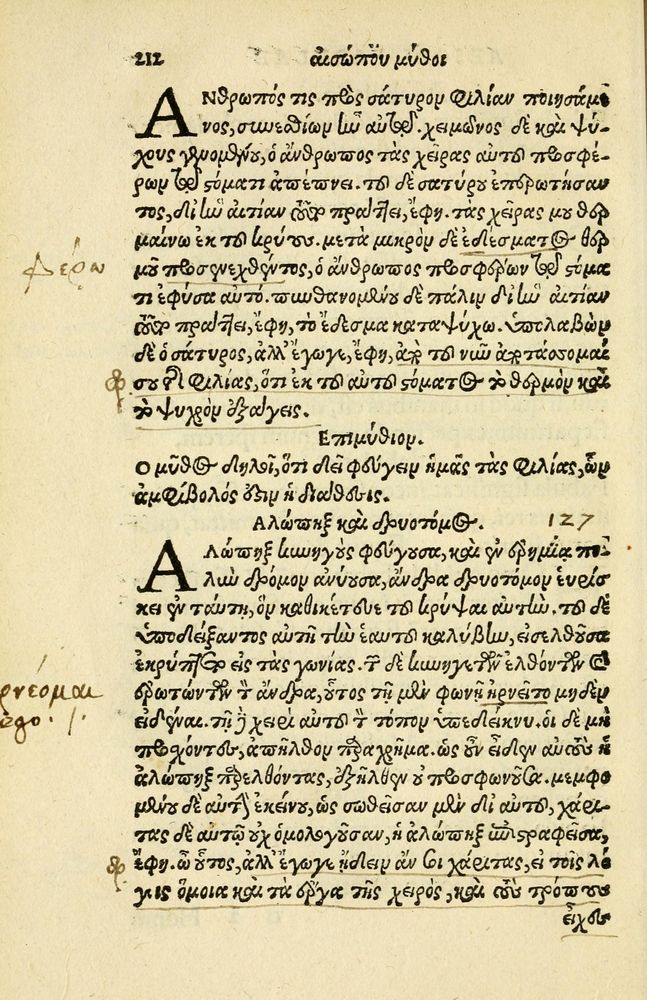 212 αἰσώπου μῦθοι
Ἄνθρωπός τις πρὸς σάτυρον φιλίαν ποιησάμε
νος, συνεσθίων ἦν αὐτῷ. χειμῶνος δὲ καὶ ψύ-
χους γενομένου, ὁ ἄνθρωπος τὰς χεῖρας αὐτοῦ προσφέ-
ρων τῷ στόματι ἀπέπνει. τοῦ δὲ σατύρου ἐπερωτήσαν
τος, δι' ἣν αἰτίαν τοῦτο πράττει, ἔφη. τὰς χεῖράς μου θερ
μαίνω ἐκ τοῦ κρύους. μετὰ μικρὸν δὲ ἐδέσματος θερ
μοῦ προσενεχθέντος, ὁ ἄνθρωπος προσφέρων τῷ στόμα
τι ἐφύσα αὐτό. πυνθανομένου δὲ πάλιν δι' ἣν αἰτίαν
τοῦτο πράττει, ἔφη, τὸ ἔδεσμα καταψύχω. ὑπολαβὼν
δὲ ὁ σάτυρος, ἀλλ' ἔγωγε, ἔφη, ἀπὸ τοῦ νῦν ἀποτάσσομαί
σου τῇ φιλίᾳ, ὅτι ἐκ τοῦ αὐτοῦ στόματος τὸ θερμὸν καὶ
τὸ ψυχρὸν ἐξάγεις.
Ἐπιμύθιον.
Ὁ μῦθος δηλοῖ, ὅτι δεῖ φεύγειν ἡμᾶς τὰς φιλίας, ὧν
ἀμφίβολός ἐστιν ἡ διάθεσις.
Ἀλώπηξ καὶ δρυοτόμος. 127
Ἀλώπηξ κυνηγοὺς φεύγουσα, καὶ ἐν ἐρημίᾳ πολ
λὴν δρόμον ἀνύουσα, ἄνδρα δρυοτόμον εὑρίσ
κει ἐν ταύτῃ, ὃν καθικέτευε τοῦ κρύψαι αὐτήν. τοῦ δὲ
ὑποδείξαντος αὐτῇ τὴν ἑαυτοῦ καλύβην, εἰσελθοῦσα
ἐκρύπτετο εἰς τὰς γωνίας. τῶν δὲ κυνηγετῶν ἐλθόντων καὶ
ἐρωτώντων τὸν ἄνδρα, οὗτος τῇ μὲν φωνῇ ἠρνεῖτο μηδὲν
εἰδέναι. τῇ δὲ χειρὶ αὐτοῦ τὸν τόπον ὑπεδείκνυ. οἱ δὲ μὴ
προσχόντες, ἀπῆλθον παραχρῆμα. ὡς οὖν εἶδεν αὐτοὺς ἡ
ἀλώπηξ παρελθόντας, ἐξῆλθεν οὐ προσφωνοῦσα. μεμφο
μένου δὲ αὐτὴν ἐκείνου, ὡς σωθεῖσαν μὲν δι' αὐτοῦ, χάρι-
τας δὲ αὐτῷ οὐχ ὁμολογοῦσαν, ἡ ἀλώπηξ ἐπιστραφεῖσα,
ἔφη. ὦ οὗτος, ἀλλ' ἔγωγε ᾔδειν ἄν σοι χάριτας, εἰ τοῖς λό
γοις ὅμοια καὶ τὰ ἔργα τῆς χειρὸς, καὶ τοὺς τρόπους
εἶχες